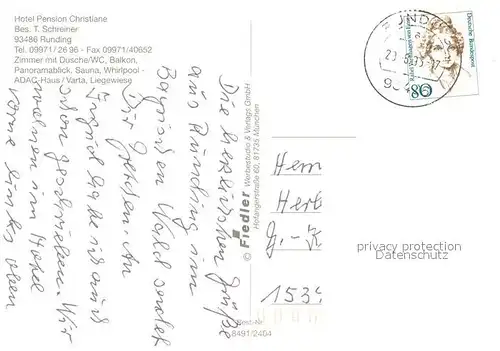 Hotel Pension Christiane
Bes. T. Schreiner
93486 Runding
Tel. 09971/26 96 - Fax 09971/40652
Zimmer mit Dusche/WC, Balkon,
Panoramablick, Sauna, Whirlpool -
ADAC-Haus / Varta, Liegewiese
Die herzlichsten Grüße
aus Runding im
Bayrischen Wald sendet
Dir Gretchen. An
Ingrid habe ich auch
schon geschrieben. Wir
wohnen im Hotel
vorne links oben
© Fiedler Werbestudio & Verlags GmbH
Hofangerstraße 60, 81735 München
Best.-Nr.
8491/2404
Deutsche Bundespost
80
Herrn
Herb
G.-K
1534
privacy protection
Datenschutz